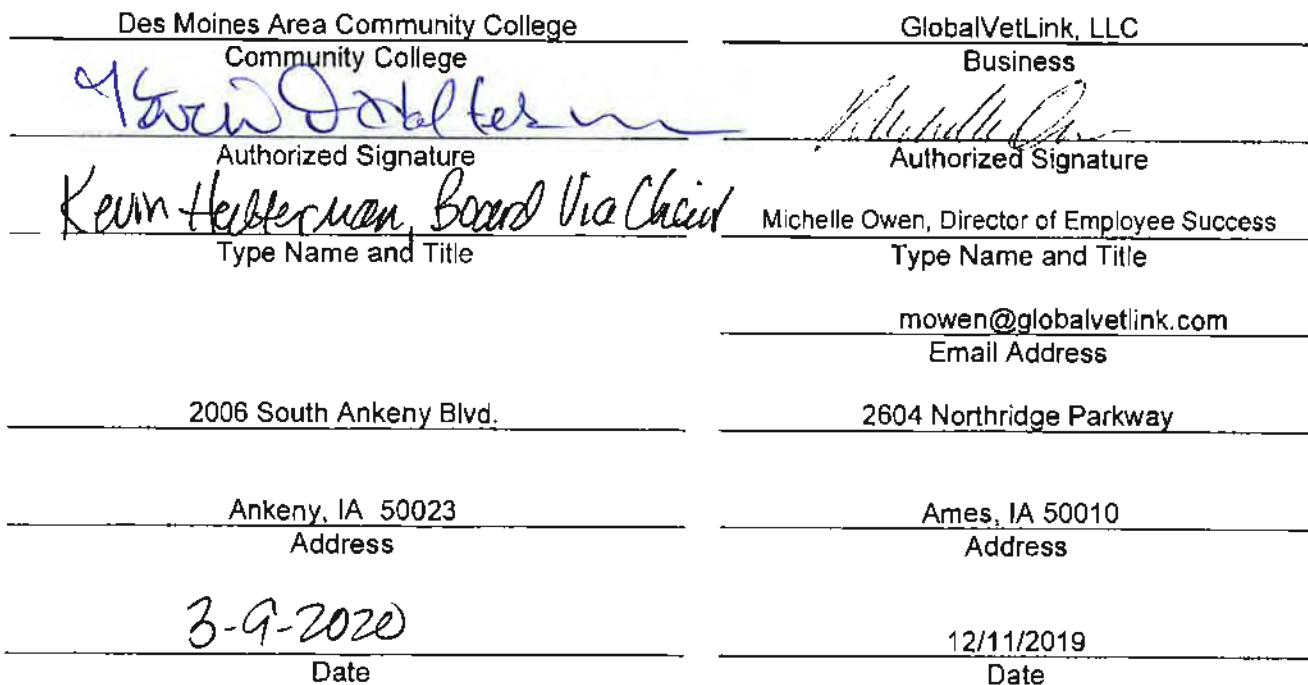 Des Moines Area Community College
Community College
Kevin D Halterman
Authorized Signature
Kevin Halterman, Board Vice Chair
Type Name and Title
2006 South Ankeny Blvd.
Ankeny, IA 50023
Address
3-9-2020
Date
GlobalVetLink, LLC
Business
Michelle Owen
Authorized Signature
Michelle Owen, Director of Employee Success
Type Name and Title
mowen@globalvetlink.com
Email Address
2604 Northridge Parkway
Ames, IA 50010
Address
12/11/2019
Date